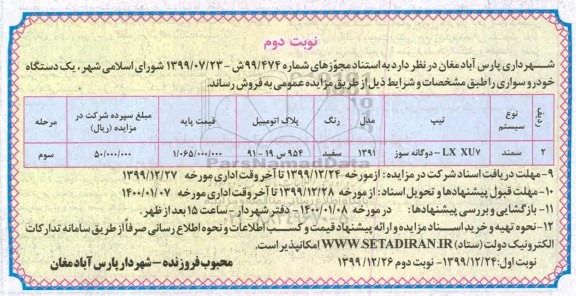 نوبت دوم
شهرداری پارس آباد مغان در نظر دارد به استناد مجوزهای شماره ۹۹/۴۷۴ش - ۱۳۹۹/۰۷/۲۳ شورای اسلامی شهر، یک دستگاه
خودرو سواری را طبق مشخصات و شرایط ذیل از طریق مزایده عمومی به فروش رساند.
ردیف نوع سیستم تیپ مدل رنگ پلاک اتومبیل قیمت پایه مبلغ سپرده شرکت در مزایده (ریال) مرحله
۲ سمند LX XU۷ – دوگانه سوز ۱۳۹۱ سفید ۹۵۴ س ۱۹ - ۹۱ ۱/۰۶۵/۰۰۰/۰۰۰ ۵۰/۰۰۰/۰۰۰ سوم
ParsNamadData
۹- مهلت دریافت اسناد شرکت در مزایده: از مورخه ۱۳۹۹/۱۲/۲۴ تا آخر وقت اداری مورخه ۱۳۹۹/۱۲/۲۷
۱۰- مهلت قبول پیشنهادها و تحویل اسناد: از مورخه ۱۳۹۹/۱۲/۲۸ تا آخر وقت اداری مورخه ۱۴۰۰/۰۱/۰۷
۱۱- بازگشایی و بررسی پیشنهادها: در مورخه ۱۴۰۰/۰۱/۰۸ - دفتر شهردار - ساعت ۱۵ بعد از ظهر.
۱۲- نحوه تهیه و خرید اسناد مزایده و ارائه پیشنهاد قیمت و کسب اطلاعات و نحوه اطلاع رسانی صرفاً از طریق سامانه تدارکات
الکترونیک دولت (ستاد) WWW.SETADIRAN.IR امکانپذیر است.
نوبت اول: ۱۳۹۹/۱۲/۲۴- نوبت دوم ۱۳۹۹/۱۲/۲۶
محبوب فروزنده – شهردار پارس آباد مغان